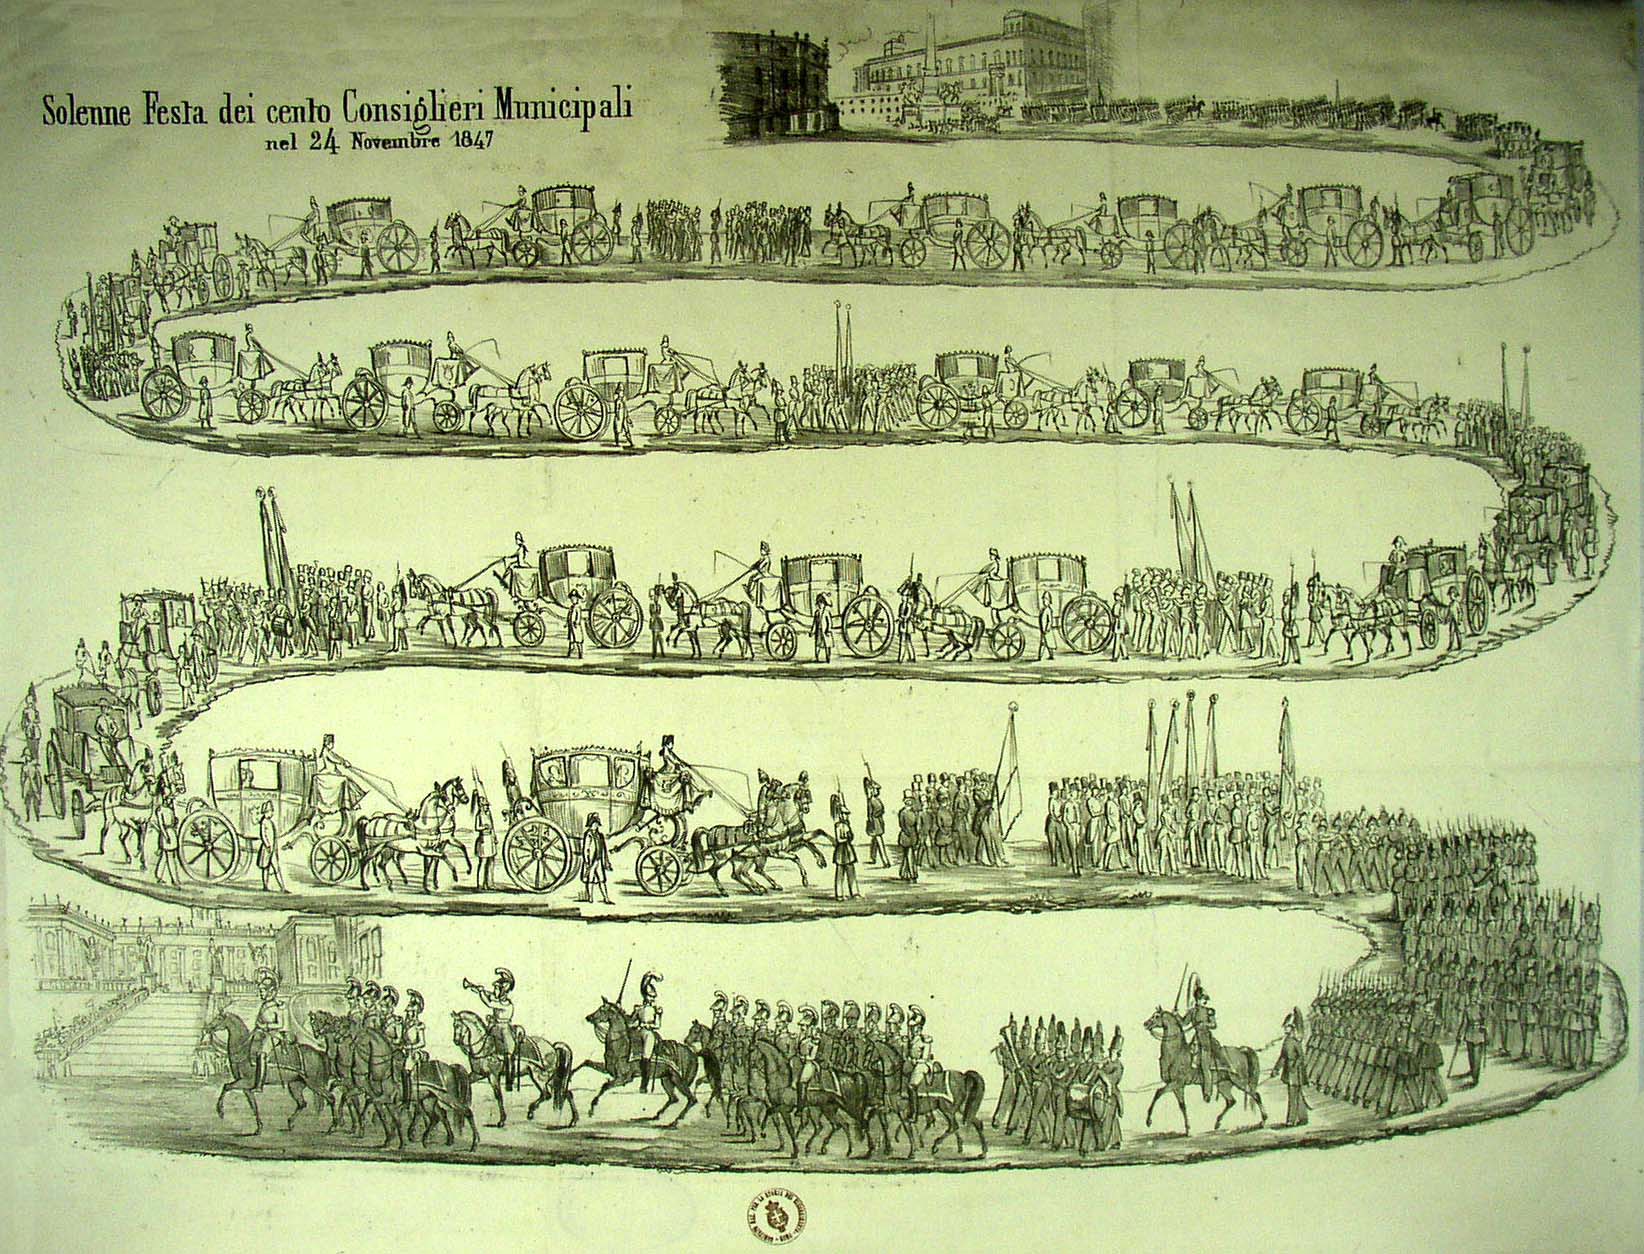 Solenne Festa dei cento Consiglieri Municipali
nel 24 Novembre 1847